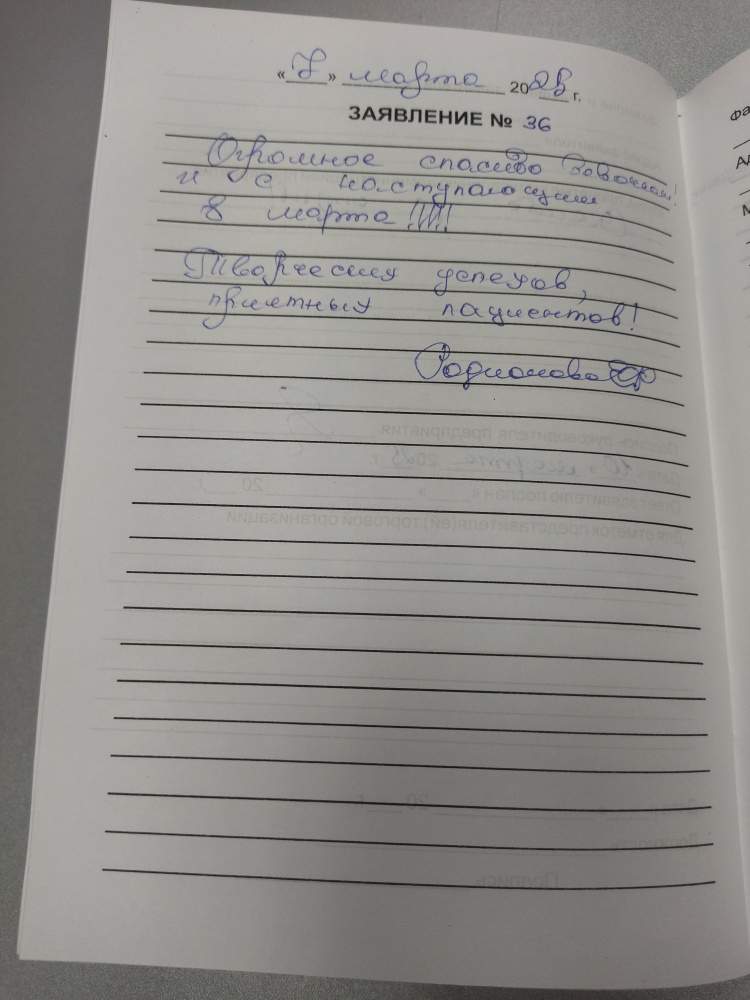 «7» марта 2023 г.
ЗАЯВЛЕНИЕ № 36
Огромное спасибо
и с наступающим
8 марта!!!!!
Творческих успехов,
приятных пациентов!
Родионова